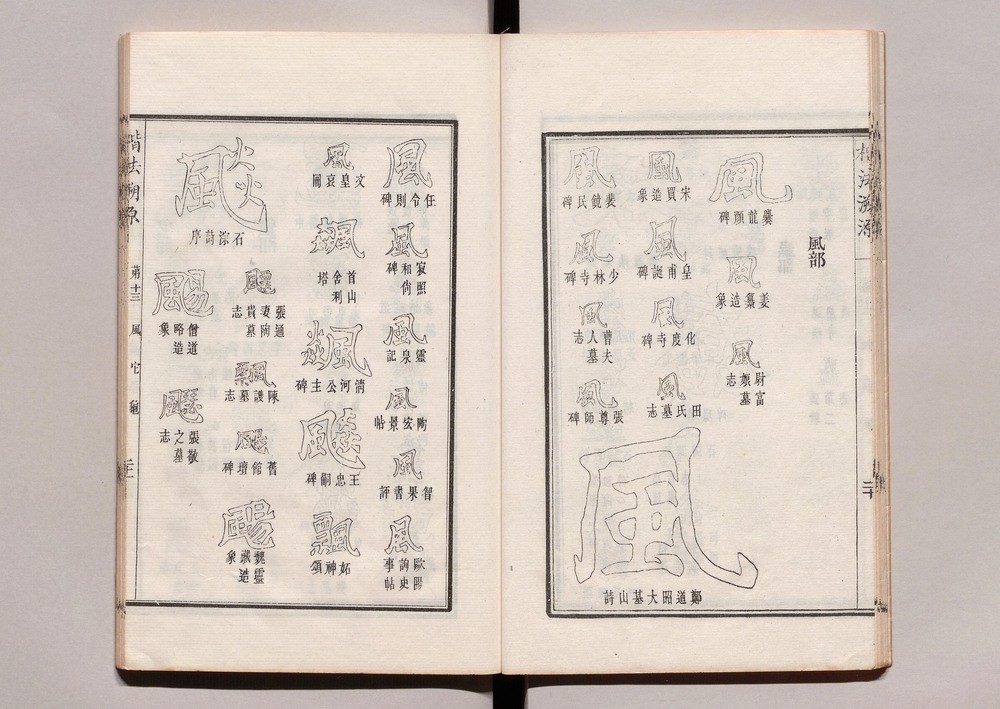 楷法溯源
二十
風部
風
爨龍顏碑
風
姜纂造象
風
尉富孃墓志
風
宋買造象
風
皇甫誕碑
風
化度寺碑
風
田氏墓志
風
裴鏡民碑
風
少林寺碑
風
曹夫人墓志
風
張尊師碑
風
鄭道昭大基山詩
風
任令則碑
風
寂照和尚碑
風
靈泉記
風
陶宏景帖
風
智果書評
風
歐陽詢史事帖
風
文皇哀冊
飆
首山舍利塔
飆
清河公主碑
飆
王忠嗣碑
飄
妬神頌
石淙詩序
張通妻陶貴墓志
飄
陳護墓志
颺
舊館壇碑
颺
魏靈藏造象
颺
僧道略造象
張敬之墓志
楷法溯原
第十三
風 它 龜
二十一